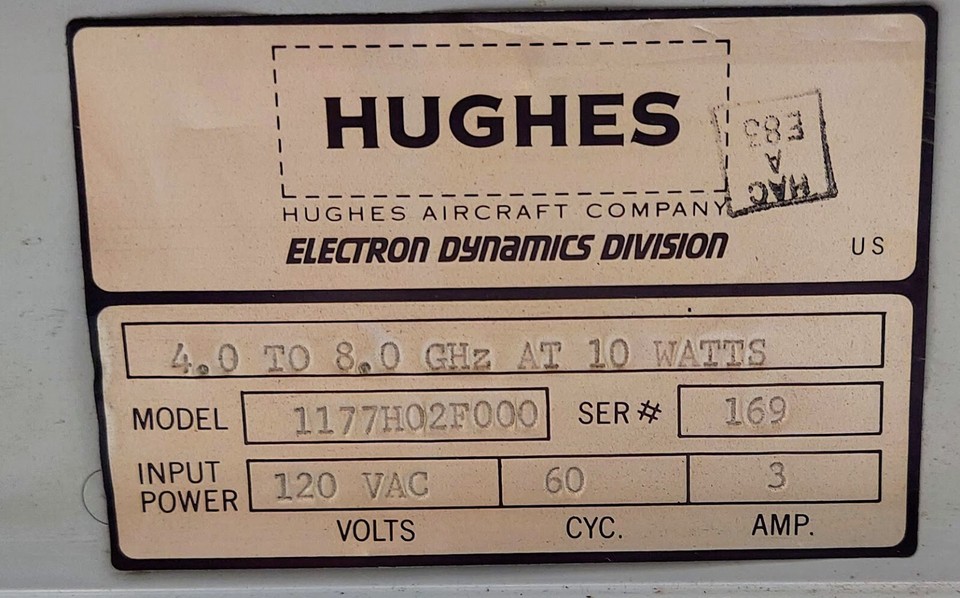 HUGHES
HUGHES AIRCRAFT COMPANY
ELECTRON DYNAMICS DIVISION
US
HAC
A
E83
4.0 TO 8.0 GHz AT 10 WATTS
MODEL 1177H02F000 SER # 169
INPUT POWER 120 VAC 60 3
VOLTS CYC. AMP.